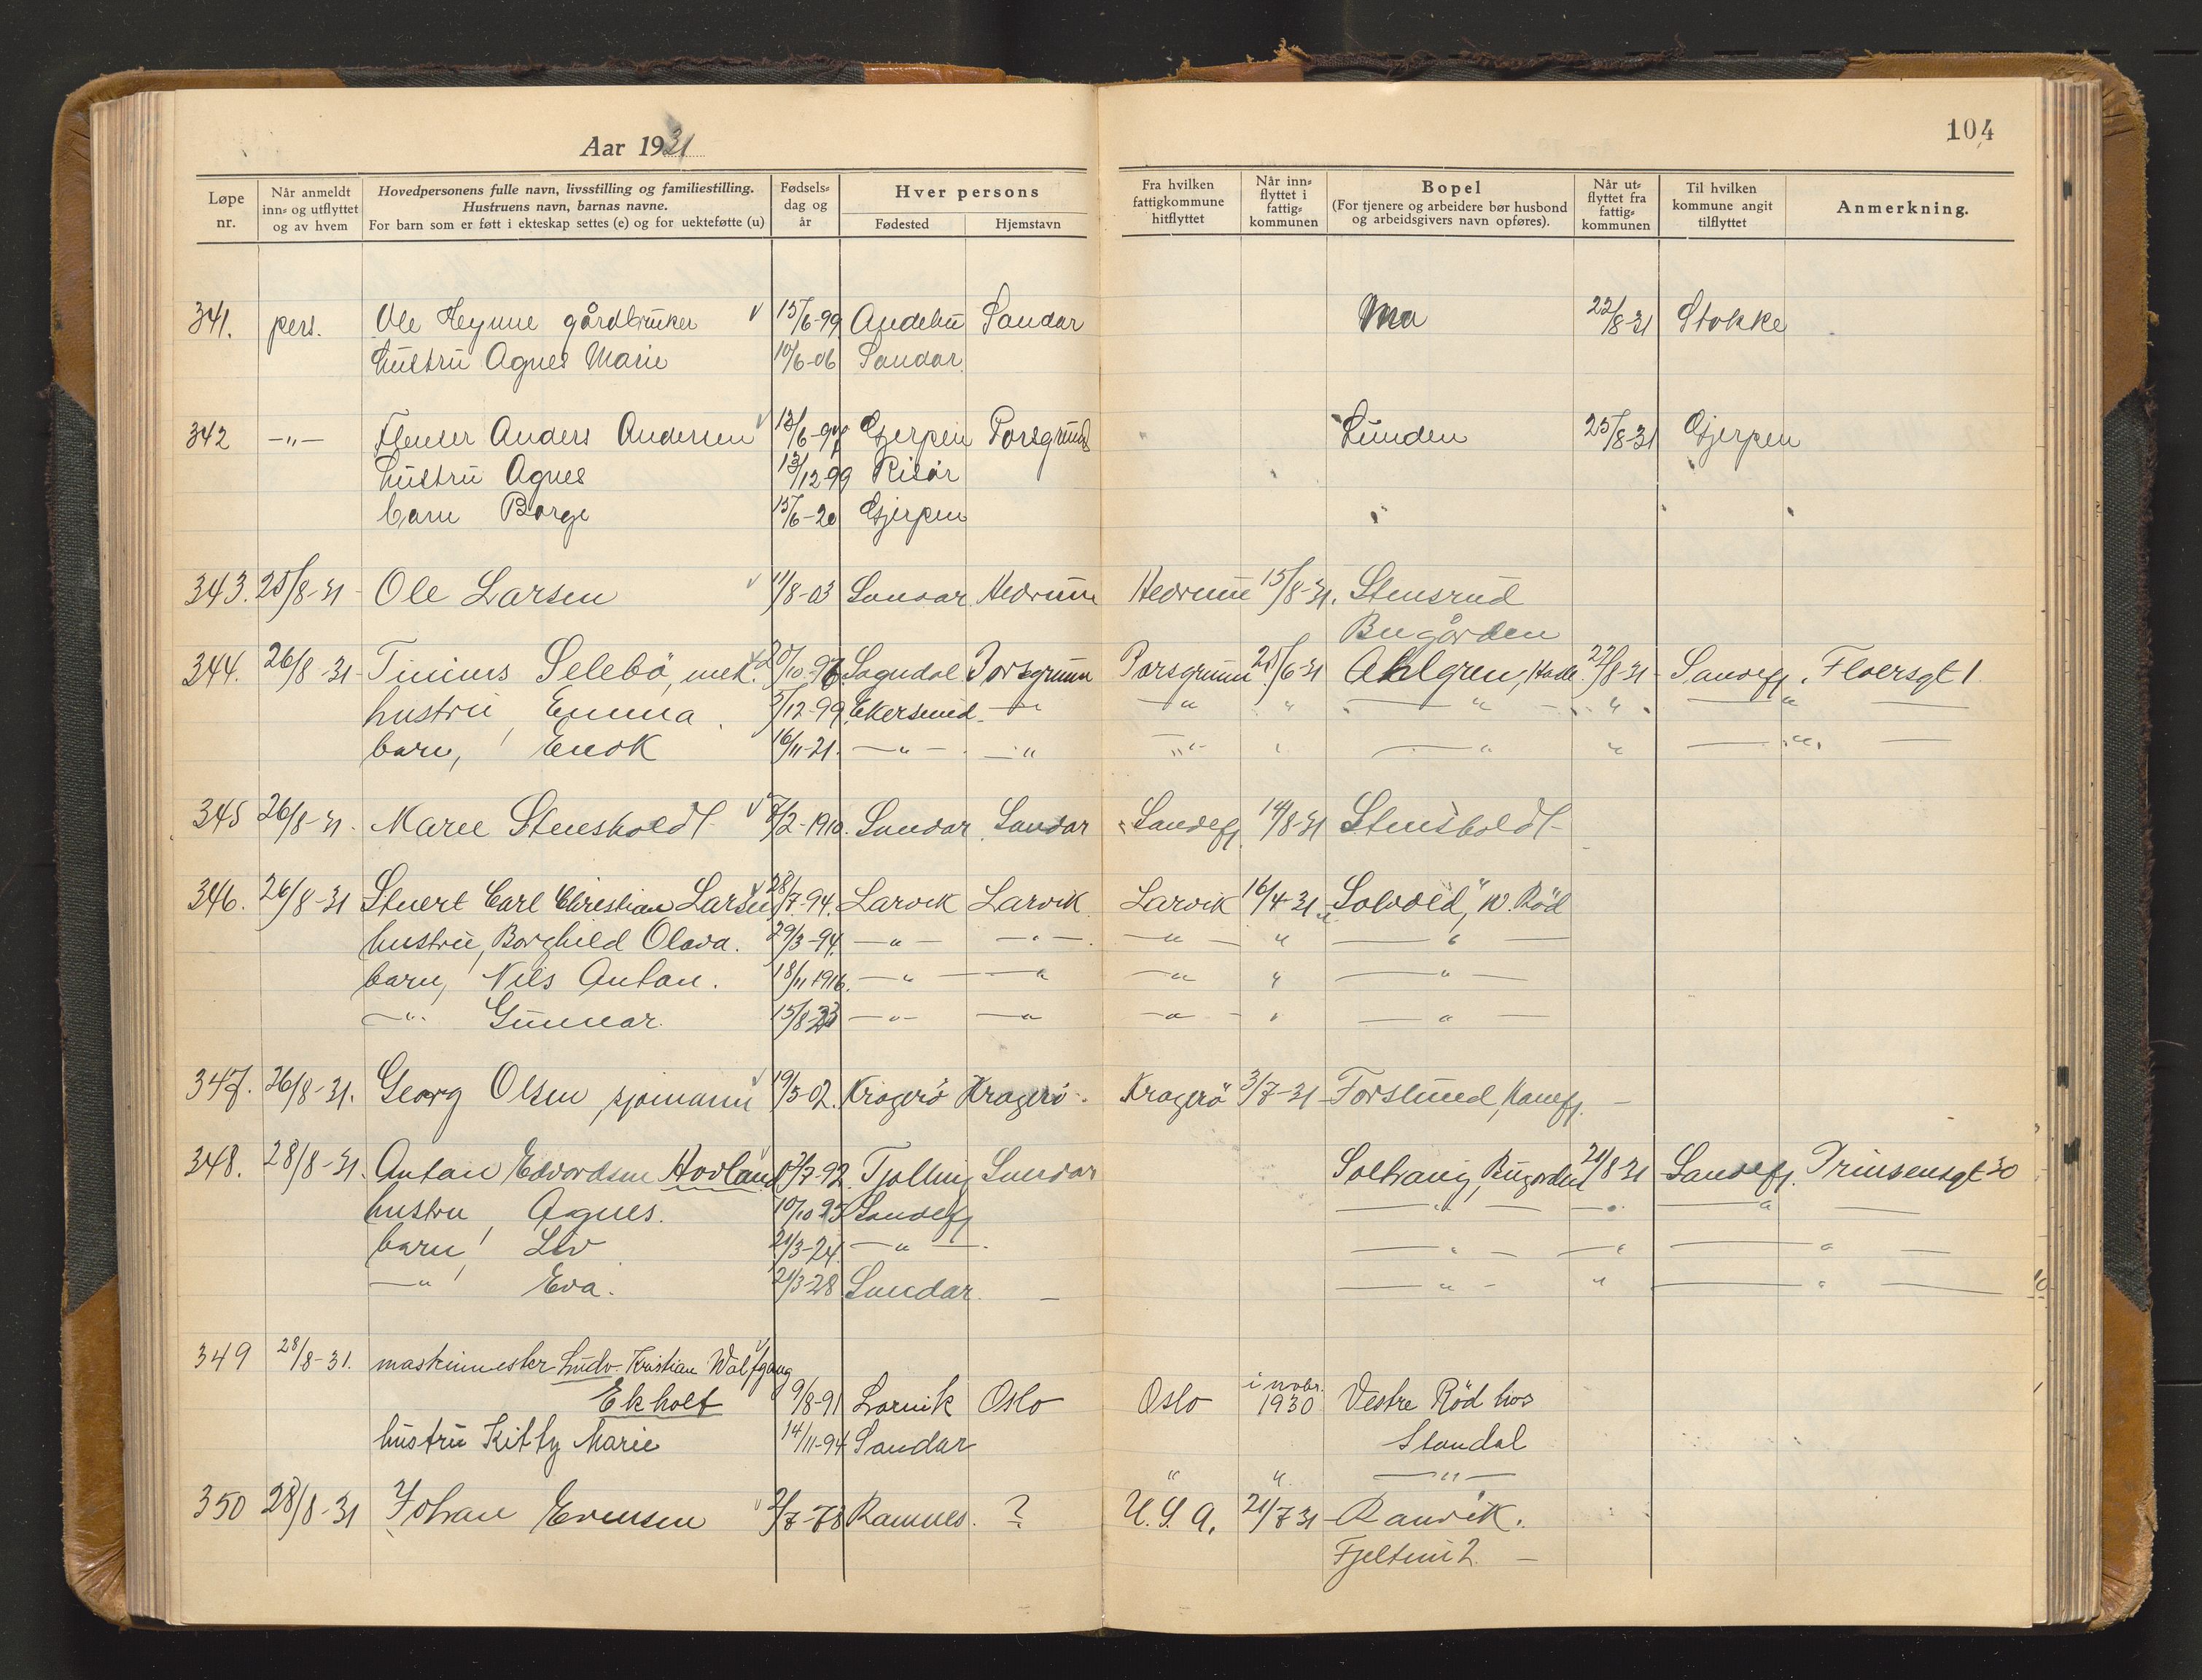 Aar 1931
104
Løpe nr.
Når anmeldt inn- og utflyttet og av hvem
Hovedpersonens fulle navn, livsstilling og familiestilling.
Hustruens navn, barnas navne.
For barn som er født i ekteskap settes (e) og for uekteføtte (u)
Fødselsdag og år
Hver persons
Fødested
Hjemstavn
Fra hvilken fattigkommune hitflyttet
Når innflyttet i fattigkommunen
Bopel
(For tjenere og arbeidere bør husbond og arbeidsgivers navn opføres).
Når utflyttet fra fattigkommunen
Til hvilken kommune angit tilflyttet
Anmerkning.
341. pers. Ole Heynne gårdbruker 15/6-99 Andebu Sandar 22/8-31 Stokke
hustru Agnes Marie 10/6-06 Sandar
342 -"- Anders Andersen Gjerpen Porsgrund Lunden 25/8-31 Gjerpen
hustru Agnes 13/12 99 Risør
barn Borge 15/6-20 Gjerpen
343. 25/8-31 Ole Larsen 11/8-03 Sandar Hedrum Hedrum 15/8-31. Stensrud
Bugården
344. 26/8-31 Tinius Selebö, mek. Sogndal Porsgrunn Porsgrunn 25/6-31 Ahlgren, 27/8-31 Sandefj. Floersgt 1.
hustru, Emma. 5/12-99 Ekersund -"- -"- " -"- " -"-
barn, Enok 16/11-21. -"- -"- -"- " -"- " -"-
345 26/8-31. Marie Stensholdt 8/2-1910. Sandar Sandar Sandefj. 14/8-31 Stensholdt
346. 26/8-31 Stuert Carl Christian Larsen 28/7-94. Larvik Larvik Larvik 16/4-31 "Solvold", V. Röd
hustru, Borghild Olava. 29/3-94. -"- -"- -"- " -"-
barn, Nils Anton. 18/11 1916. -"- -"- -"- " -"-
-"- Gunnar. 15/8-23 -"- -"- -"- " -"-
347. 26/8-31. Georg Olsen, sjömann 19/5-02. Kragerö Kragerö. Kragerö 3/7-31 Forslund, Kamfj.
348. 28/8-31. Anton Edvardsen Hovland Tjölling Sandar Solhaug, Bugården 21/8-31 Sandefj. Prinsensgt 30
hustru, Agnes. 10/10 93 Sandefj -"- -"- -"-
barn, Liv 21/3-24. -"- -"- -"- -"-
-"- Eva. 21/3-28 Sandar. -"- " -"-
349 28/8-31. maskinmester Ludv. Kristian Wolfgang
Ekholt 9/8-91 Larvik Oslo Oslo i novbr. 1930 Vestre Röd hos
hustru Kitty Marie 14/11-94 Sandar Standal
" " -"-
350 28/8-31 Johan Evensen 2/7-78 Ramnes. ? U.S.A. 21/7 31 Ranvik.
Fjeltun 2.